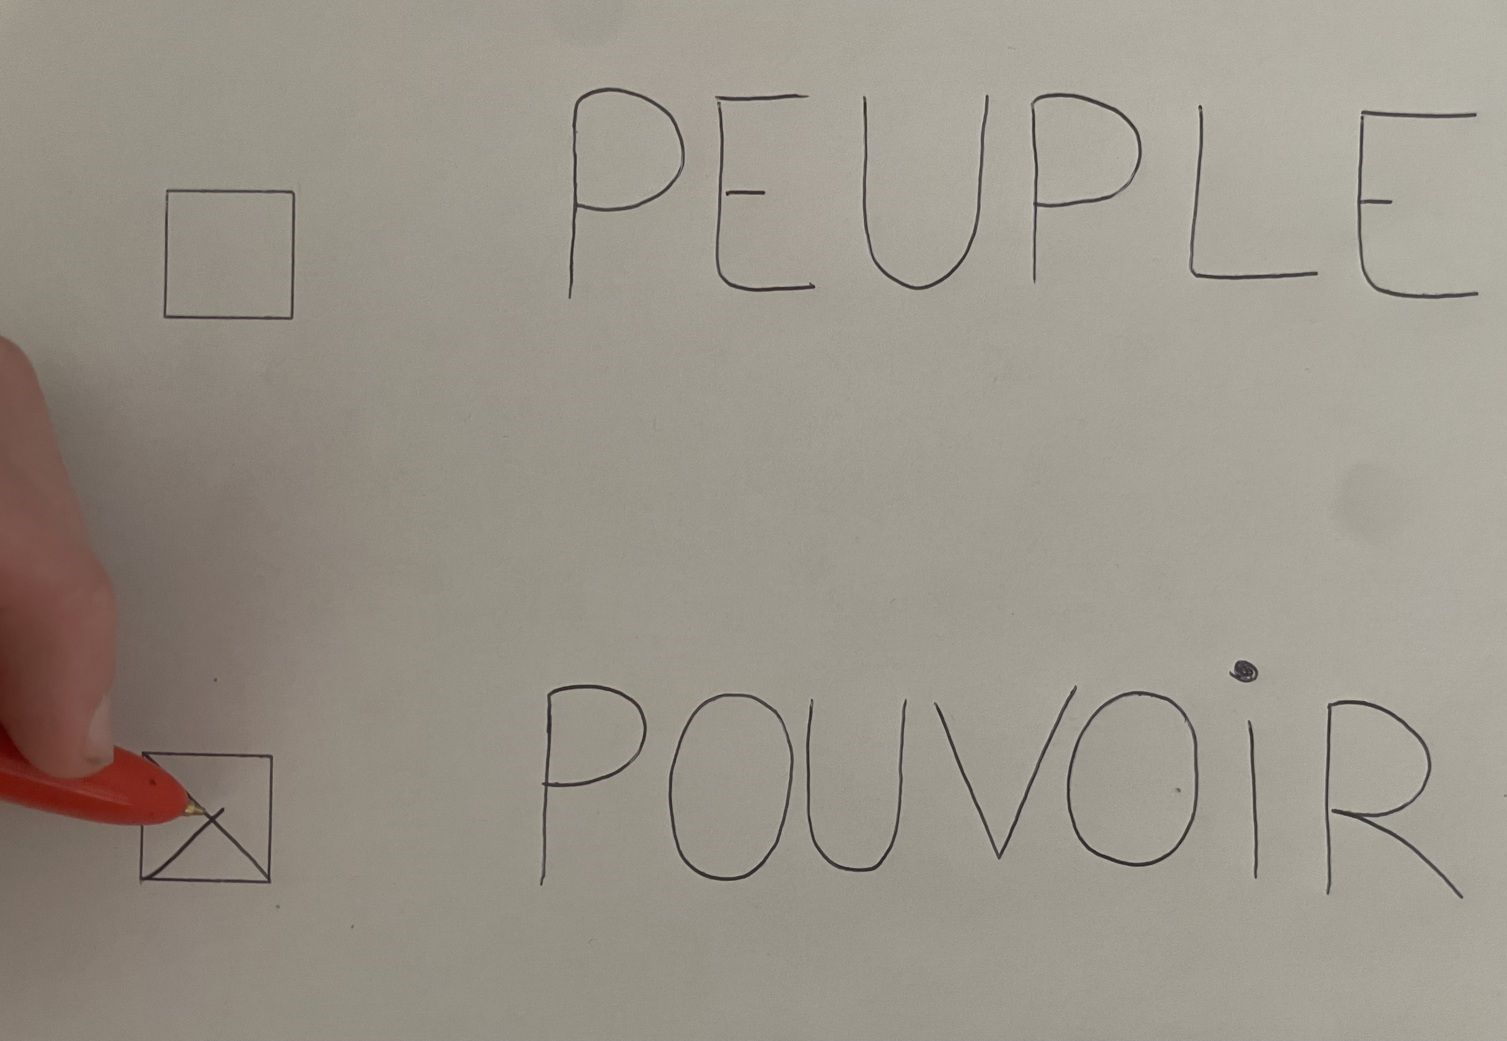 PEUPLE
POUVOiR